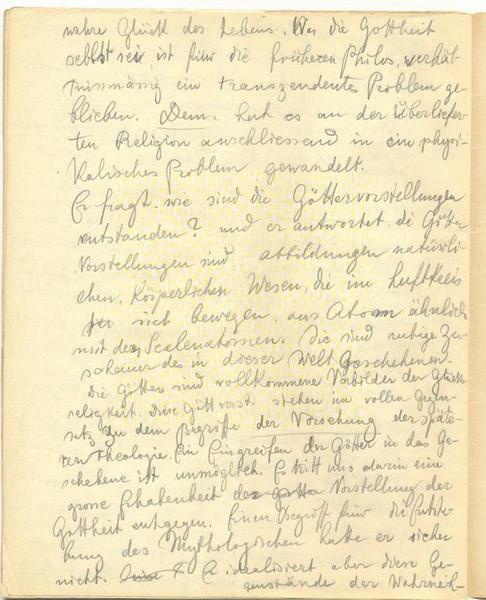 wahre Glück des Lebens. Was die Gottheit
selbst sei, ist für die früheren Philos. verhält
nismässig ein transzendentes Problem ge-
blieben. Dem. hat es an der überliefer-
ten Religion anschliessend in ein physi-
kalisches Problem gewandelt.
Er fragt wie sind die Göttervorstellungen
entstanden? und er antwortet die Götter
Vorstellungen sind abbildungen natürli-
chen, körperlichen Wesen, die im Luftkreis
sich bewegen, aus Atom ähnlich
mit den Seelenatomen. Sie sind ruhige Zu-
schauer des in dieser Welt Geschehenen.
Die Götter sind vollkommene Vorbilder der Glück-
seligkeit. Diese Göttvorst. stehen im vollen Gegen-
satz zu dem Begriffe der Vorsehung der späte-
ren Theologie. Ein Eingreifen der Götter in das Ge-
schehene ist unmöglich. Es tritt uns darin eine
grosse Erhabenheit der Vorstellung der
Gottheit entgegen. Einen Begriff für die Entste-
hung des Mythologischen hatte er sicher
nicht. Er idealisiert aber diese Ge-
genstände der Wahrneh-